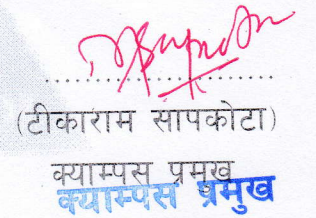 (टीकाराम सापकोटा)
क्याम्पस प्रमुख
क्याम्पस प्रमुख